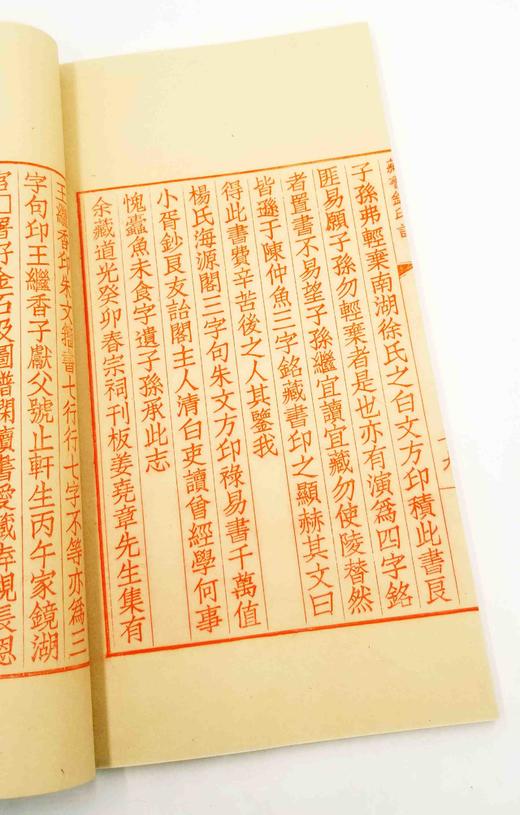 子孫弗輕棄南湖徐氏之白文方印積此書良
匪易願子孫勿輕棄者是也亦有演爲四字銘
者置書不易望子孫繼宜讀宜藏勿使陵替然
皆遜于陳仲魚三字銘藏書印之顯赫其文曰
得此書費辛苦後之人其鑒我
楊氏海源閣三字句朱文方印祿易書千萬值
小胥鈔良友詒閣主人清白吏讀曾經學何事
愧蠹魚未食字遺子孫承此志
余藏道光癸卯春宗祠刊板姜堯章先生集有
王繼香印朱文楷書十行行七字不等亦爲三
字句印王繼香子獻父號止軒生丙午家鏡湖
官口署好金石及圖譜閑讀書愛